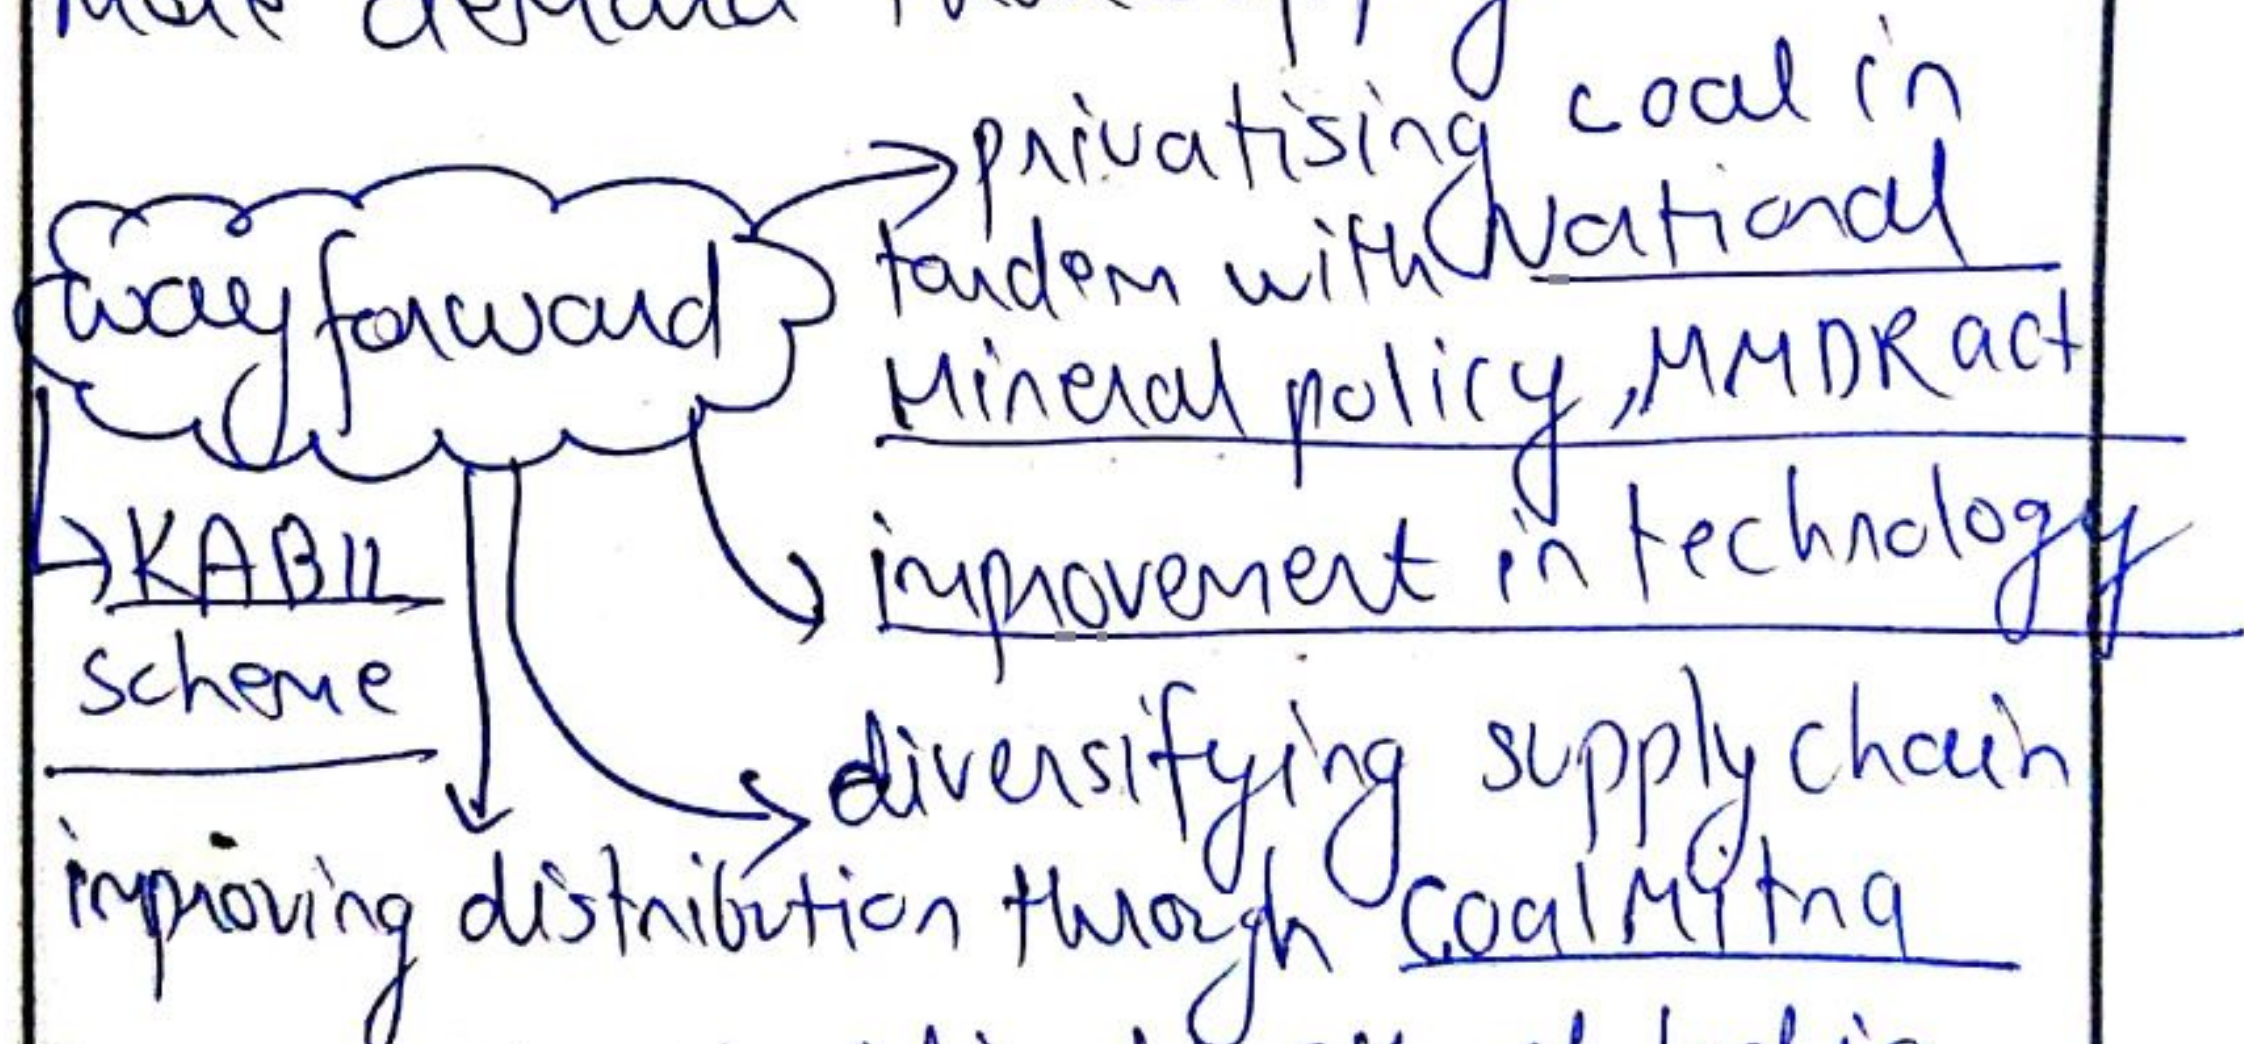 more demand
privatising coal in
tandem with National
Mineral policy, MMDR act
way forward
improvement in technology
KABIL
scheme
diversifying supply chain
improving distribution through coalmitra